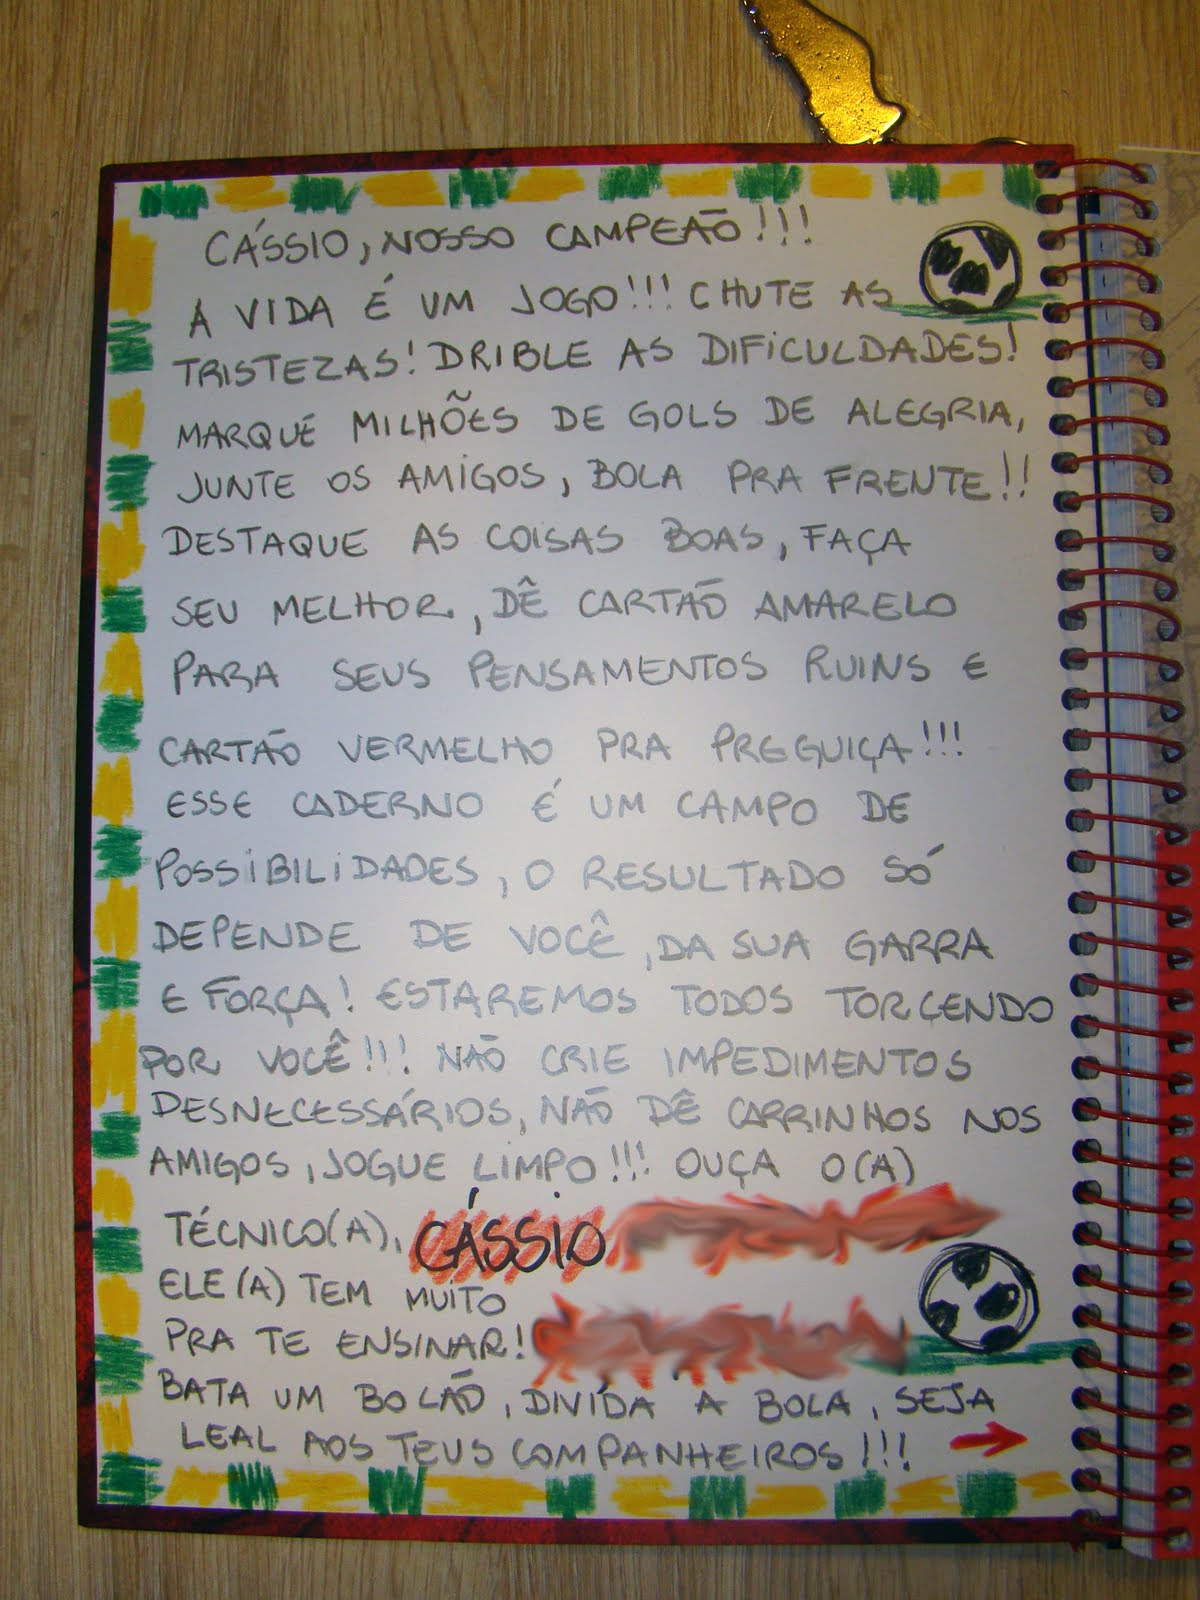 CÁSSIO, NOSSO CAMPEÃO!!!
A VIDA É UM JOGO!!! CHUTE AS
TRISTEZAS! DRIBLE AS DIFICULDADES!
MARQUE MILHÕES DE GOLS DE ALEGRIA,
JUNTE OS AMIGOS, BOLA PRA FRENTE!!
DESTAQUE AS COISAS BOAS, FAÇA
SEU MELHOR, DÊ CARTÃO AMARELO
PARA SEUS PENSAMENTOS RUINS E
CARTÃO VERMELHO PRA PREGUIÇA!!!
ESSE CADERNO É UM CAMPO DE
POSSIBILIDADES, O RESULTADO SÓ
DEPENDE DE VOCÊ, DA SUA GARRA
E FORÇA! ESTAREMOS TODOS TORCENDO
POR VOCÊ!!! NÃO CRIE IMPEDIMENTOS
DESNECESSÁRIOS, NÃO DÊ CARRINHOS NOS
AMIGOS, JOGUE LIMPO!!! OUÇA O(A)
TÉCNICO(A), CÁSSIO
ELE(A) TEM MUITO
PRA TE ENSINAR!
BATA UM BOLÃO, DIVIDA A BOLA, SEJA
LEAL AOS TEUS COMPANHEIROS!!!